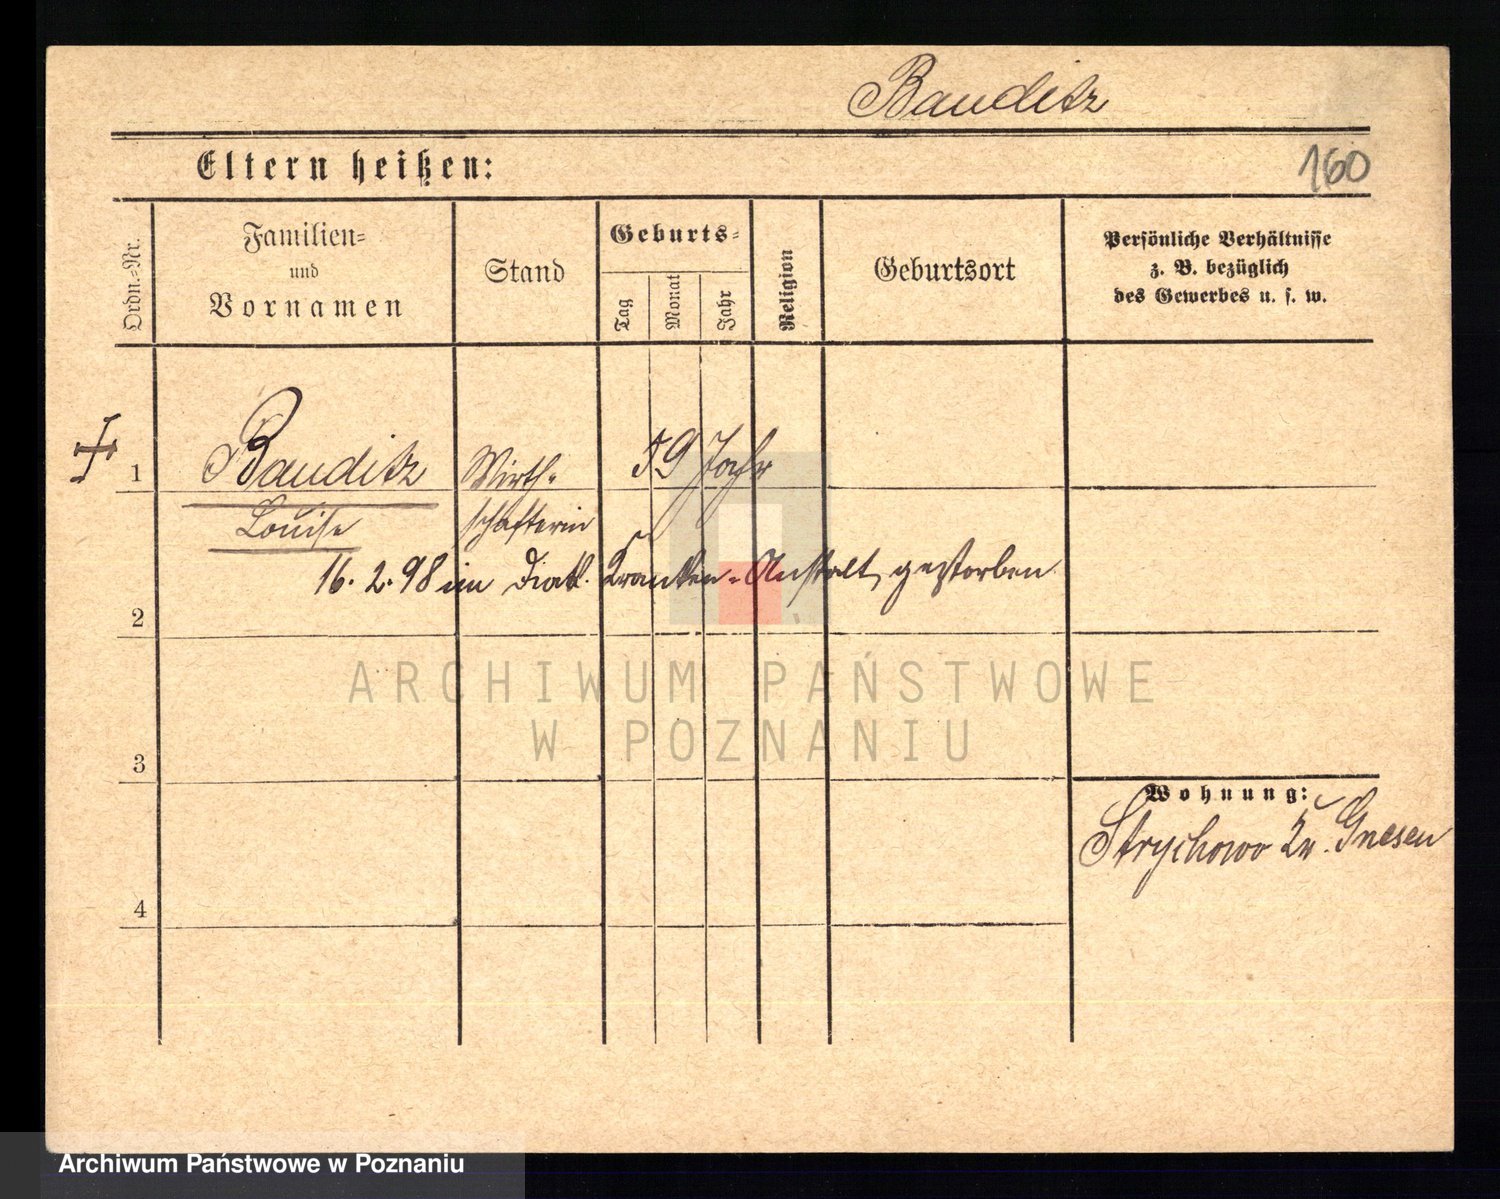 Bauditz
Eltern heißen:
160
Ordn.-Nr.
Familien-
und
Vornamen
Stand
Geburts-
Tag
Monat
Jahr
Religion
Geburtsort
Persönliche Verhältnisse
z. B. bezüglich
des Gewerbes u. s. w.
1
Bauditz
Louise
Wirth-
schafterin
59 Jahr
16. 2. 98 im Diak. Kranken-Anstalt gestorben
2
3
4
Wohnung:
Strychowo Kr. Gnesen
ARCHIWUM PAŃSTWOWE
W POZNANIU
Archiwum Państwowe w Poznaniu